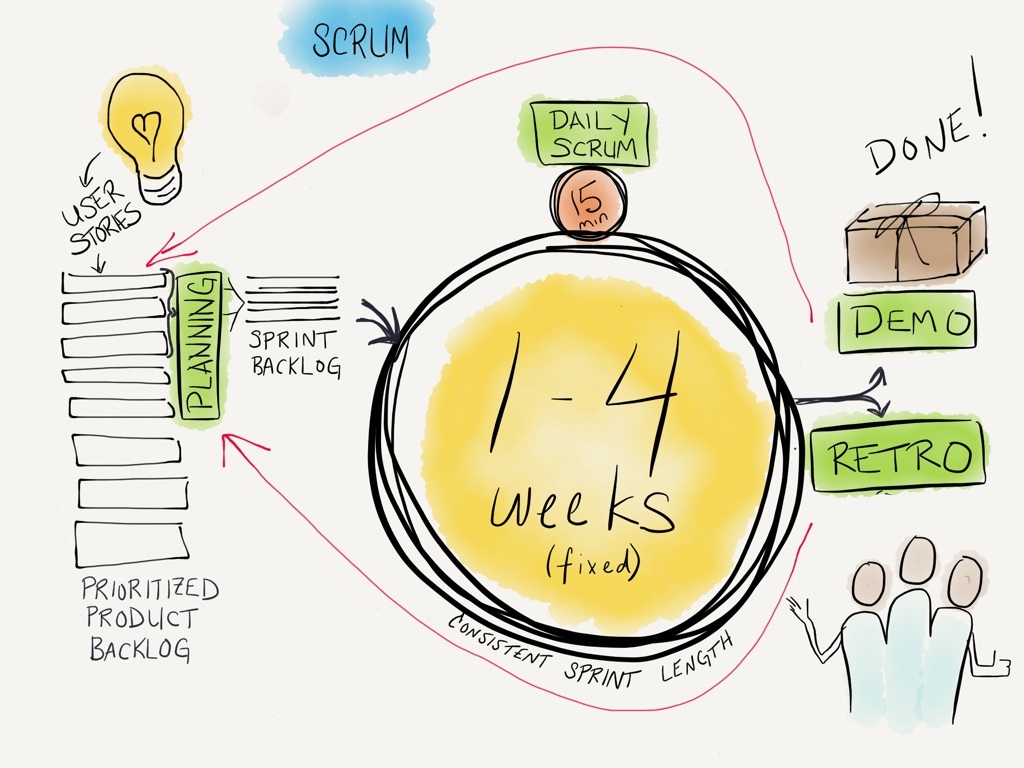 SCRUM
USER
STORIES
PLANNING
SPRINT
BACKLOG
PRIORITIZED
PRODUCT
BACKLOG
DAILY
SCRUM
15
min
1-4
weeks
(fixed)
CONSISTENT SPRINT LENGTH
DONE!
DEMO
RETRO